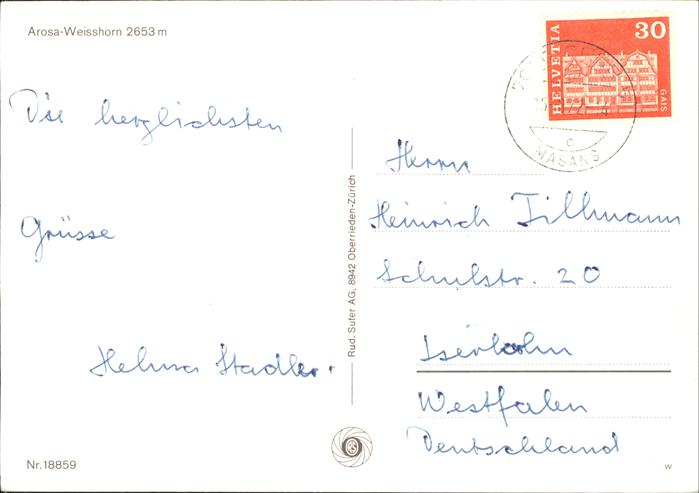 Arosa-Weisshorn 2653 m
Die herzlichsten
Grüsse
Helma Stadler.
Nr. 18859
Rud. Suter AG, 8942 Oberrieden-Zürich
HELVETIA
30
GAIS
MASANS
Herrn
Heinrich Tillmann
Schulstr. 20
Iserlohn
Westfalen
Deutschland
W